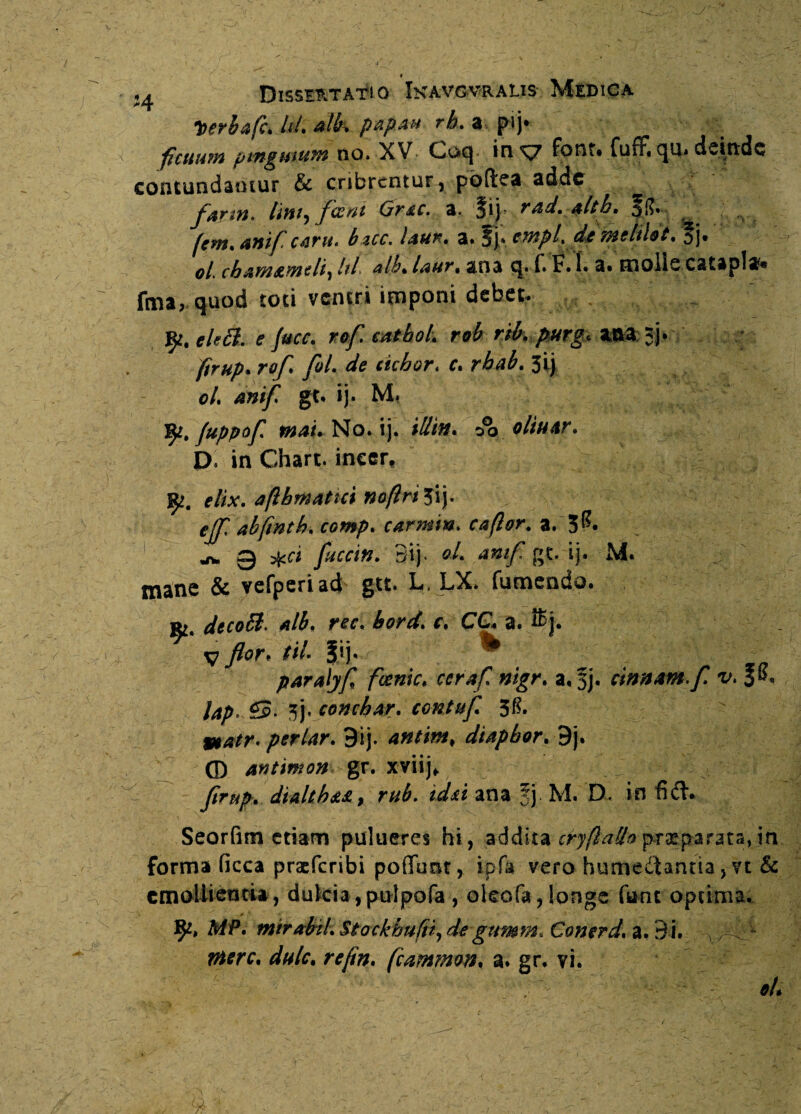 24 DISSERTATIO INAVGVRALIS MEDICA
verbasc. lil. alb. papau rh. a pij.
ficuum pinguium no. XV Coq in 🜄 font. suff. qu. deinde
contundantur & cribrentur, postea adde
farin. lini, fœni Græc. a. ℥ij rad. alth. ℥ß.
sem. anis. caru. bacc. laur. a. ℥j. empl. de melilot. ℥j.
ol. chamæmeli, lil alb. laur. ana q. s. F. l. a. molle catapla-
sma, quod toti ventri imponi debet.
℞. elect. e succ. ros. cathol. rob rib. purg. ana ʒj.
sirup. ros. sol. de cichor. c. rhab. ʒij
ol. anis. gt. ij. M.
℞. suppos. mai. No. ij. illin. oliuar.
D. in Chart. incer.
℞. elix. asthmatici nostri ʒij.
ess. absinth. comp. carmin. castor. a. ʒß.
ci succin. ℈ij. ol. anis. gt. ij. M.
mane & vesperi ad gtt. L, LX. sumendo.
℞. decoct. alb. rec. hord. c. CC. a. ℔j.
▽ flor. til. ℥ij.
paralys. fœnic. ceras. nigr. a. ℥j. cinnam. s. v. ℥ß.
lap. 69. ʒj. conchar. contus. ʒß.
matr. perlar. ℈ij. antim. diaphor. ℈j.
🜕 antimon gr. xviij.
sirup. dialthææ, rub. idæi ana ℥j M. D. in fict.
Seorsim etiam pulueres hi, addita crystallo præparata, in
forma sicca præscribi possunt, ipsa vero humectantia, vt &
emollientia, dulcia, pulposa, oleosa, longe sunt optima.
℞. MP. mirabil. Stockhusii, de gumm. Conerd. a. ℈i.
merc. dulc. resin. scammon. a. gr. vi.
ol.